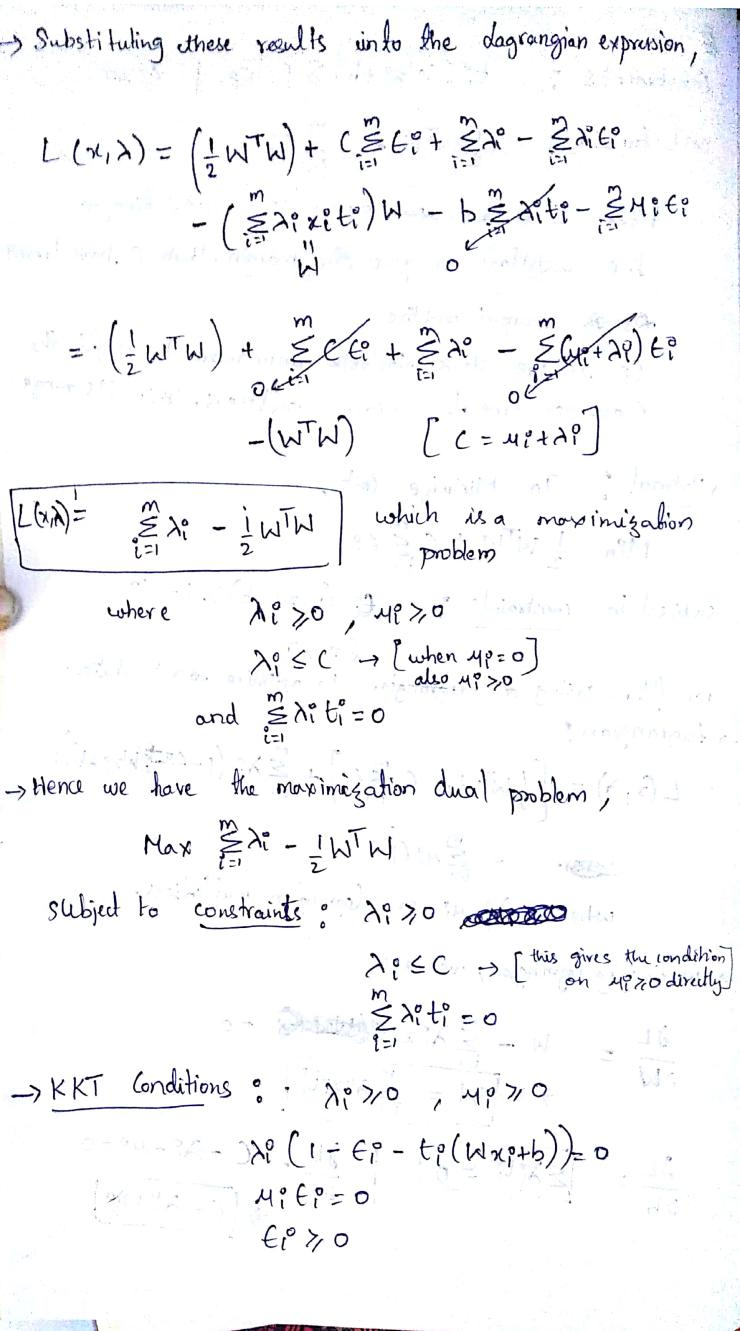 → Substituting these results into the Lagrangian expression,
L(x,λ) = (1/2 WᵀW) + C Σ_{i=1}^{m} ϵi + Σ_{i=1}^{m} λi - Σ_{i=1}^{m} λi ϵi
- (Σ_{i=1}^{m} λi xi ti) W - b Σ_{i=1}^{m} λi ti - Σ_{i=1}^{m} μi ϵi
= (1/2 WᵀW) + Σ_{i=1}^{m} C ϵi + Σ_{i=1}^{m} λi - Σ_{i=1}^{m} (μi + λi) ϵi
-(WᵀW) [C = μi + λi]
L(x,λ) = Σ_{i=1}^{m} λi - 1/2 WᵀW which is a maximization
problem
where λi ≥ 0 , μi ≥ 0
λi ≤ C → [when μi = 0]
also μi ≥ 0
and Σ_{i=1}^{m} λi ti = 0
→ Hence we have the maximization dual problem,
Max Σ_{i=1}^{m} λi - 1/2 WᵀW
subject to constraints : λi ≥ 0
λi ≤ C → [this gives the condition
on μi ≥ 0 directly]
Σ_{i=1}^{m} λi ti = 0
→ KKT Conditions : λi ≥ 0 , μi ≥ 0
λi (1 - ϵi - ti(Wxi + b)) = 0
μi ϵi = 0
ϵi ≥ 0